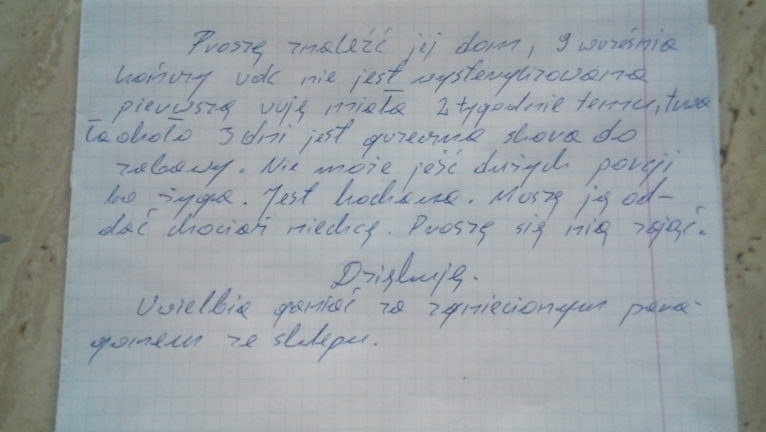 Proszę znaleźć jej dom, 9 września
kończy rok nie jest wysterylizowana
pierwszą ruję miała 2 tygodnie temu, trwa
ła około 3 dni jest grzeczna skora do
zabawy. Nie może jeść dużych porcji
bo żyga. Jest kochana. Muszę ją od-
dać chociaż niechcę. Proszę się nią zająć.
Dziękuję.
Uwielbia ganiać za zgniecionym para-
gonem ze sklepu.